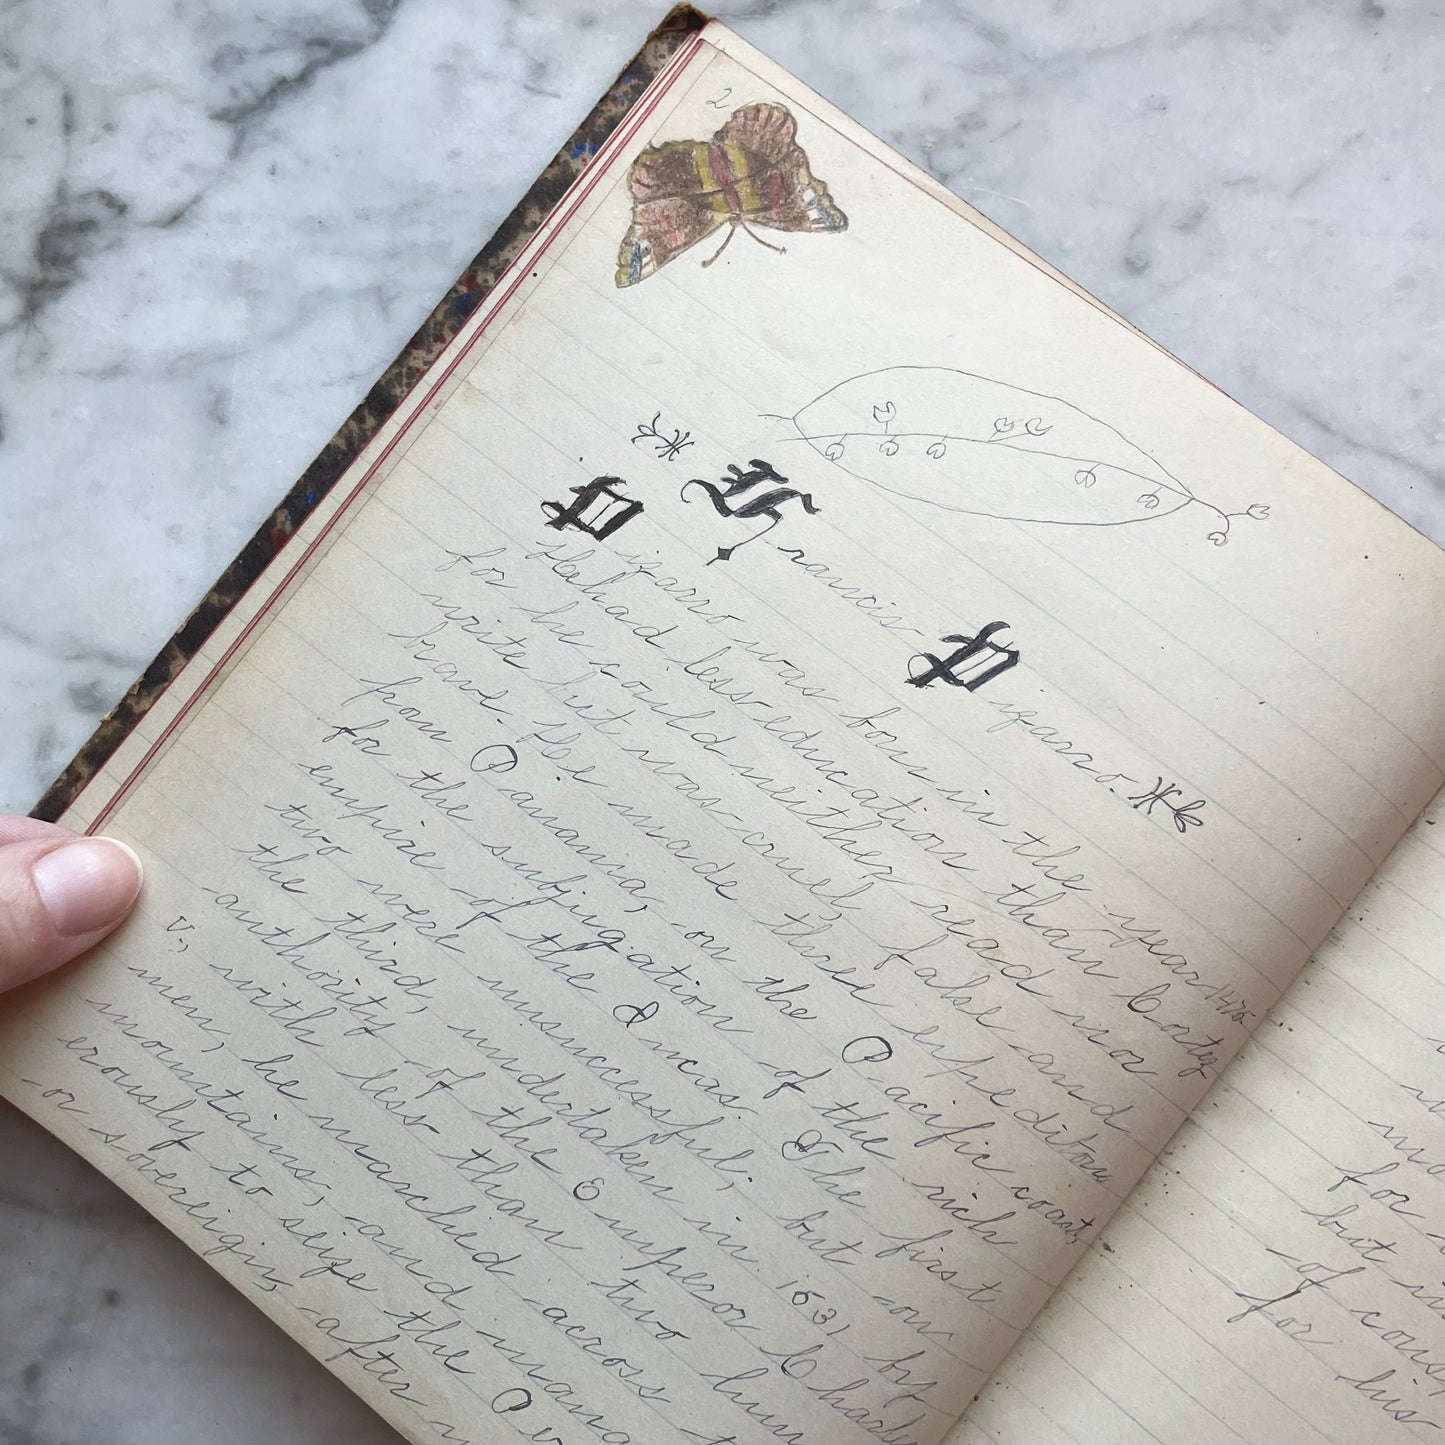 2
Francis Pizarro.
Pizarro was born in the year 1475
He had less education than Cortez
for he could neither read nor
write but was cruel, false and
brave. He made three expeditons
from Panama, on the Pacific coast,
for the subjugation of the rich
empire of the Incas. The first
two were unsuccessful; but on
the third, undertaken in 1531 by
authority of the Emperor Charl
V., with less than two hun
men, he marched across t
mountains, and mana
erously to seize the Per
or sovereign, after
for
but in
of cons
for his